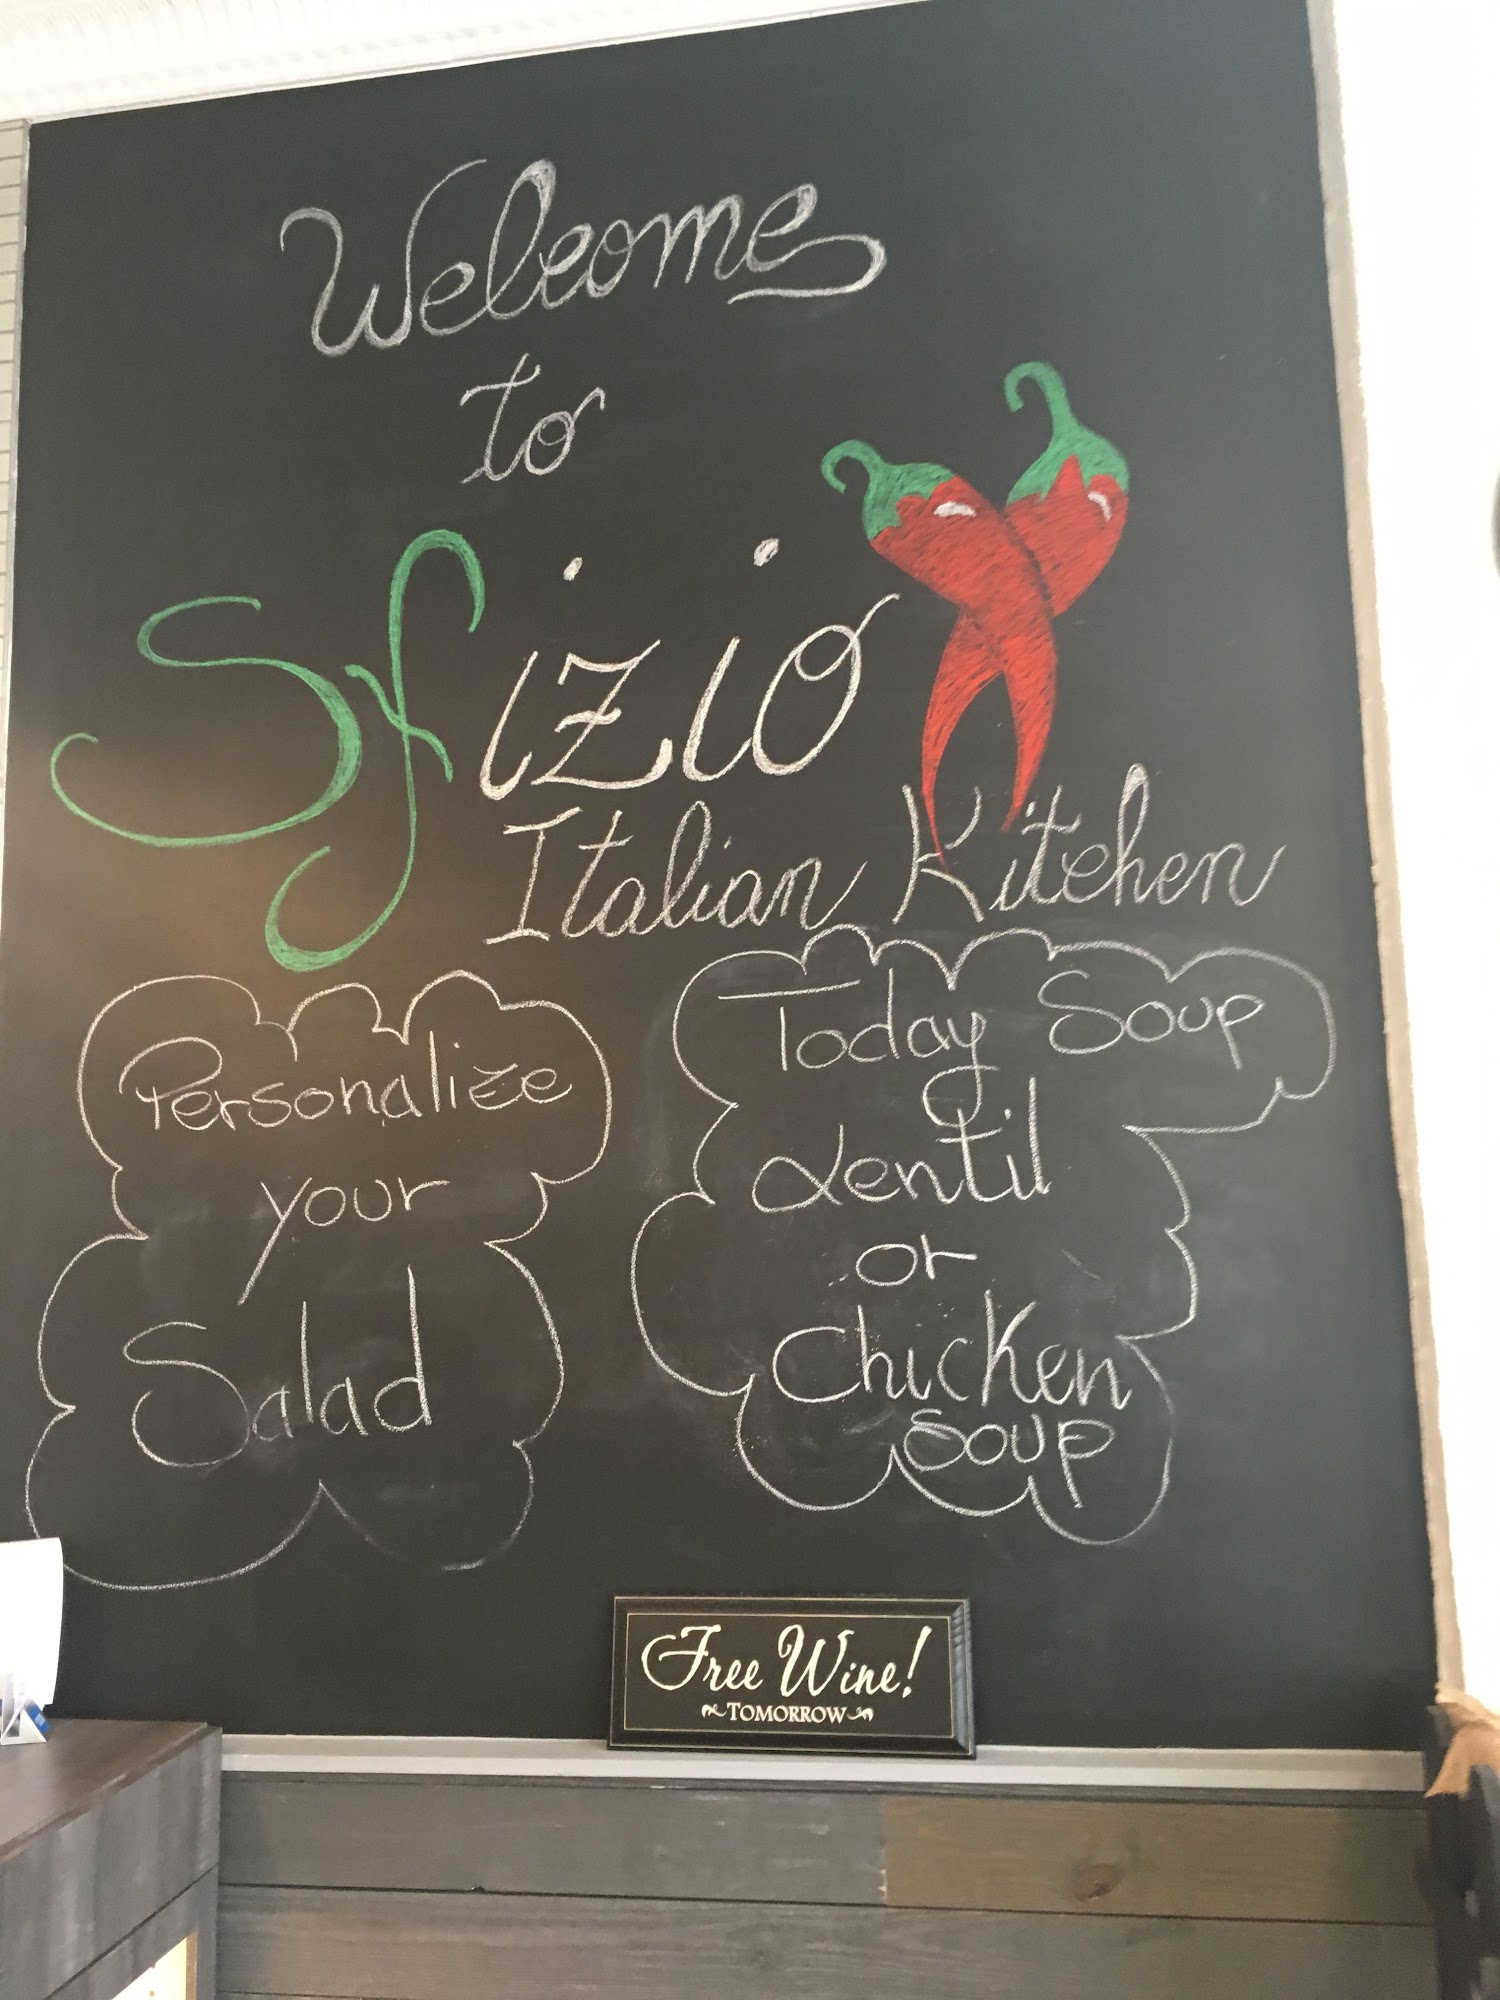 Welcome
to
Sfizio
Italian Kitchen
Personalize
your
Salad
Today Soup
Lentil
or
Chicken
Soup
Free Wine!
TOMORROW